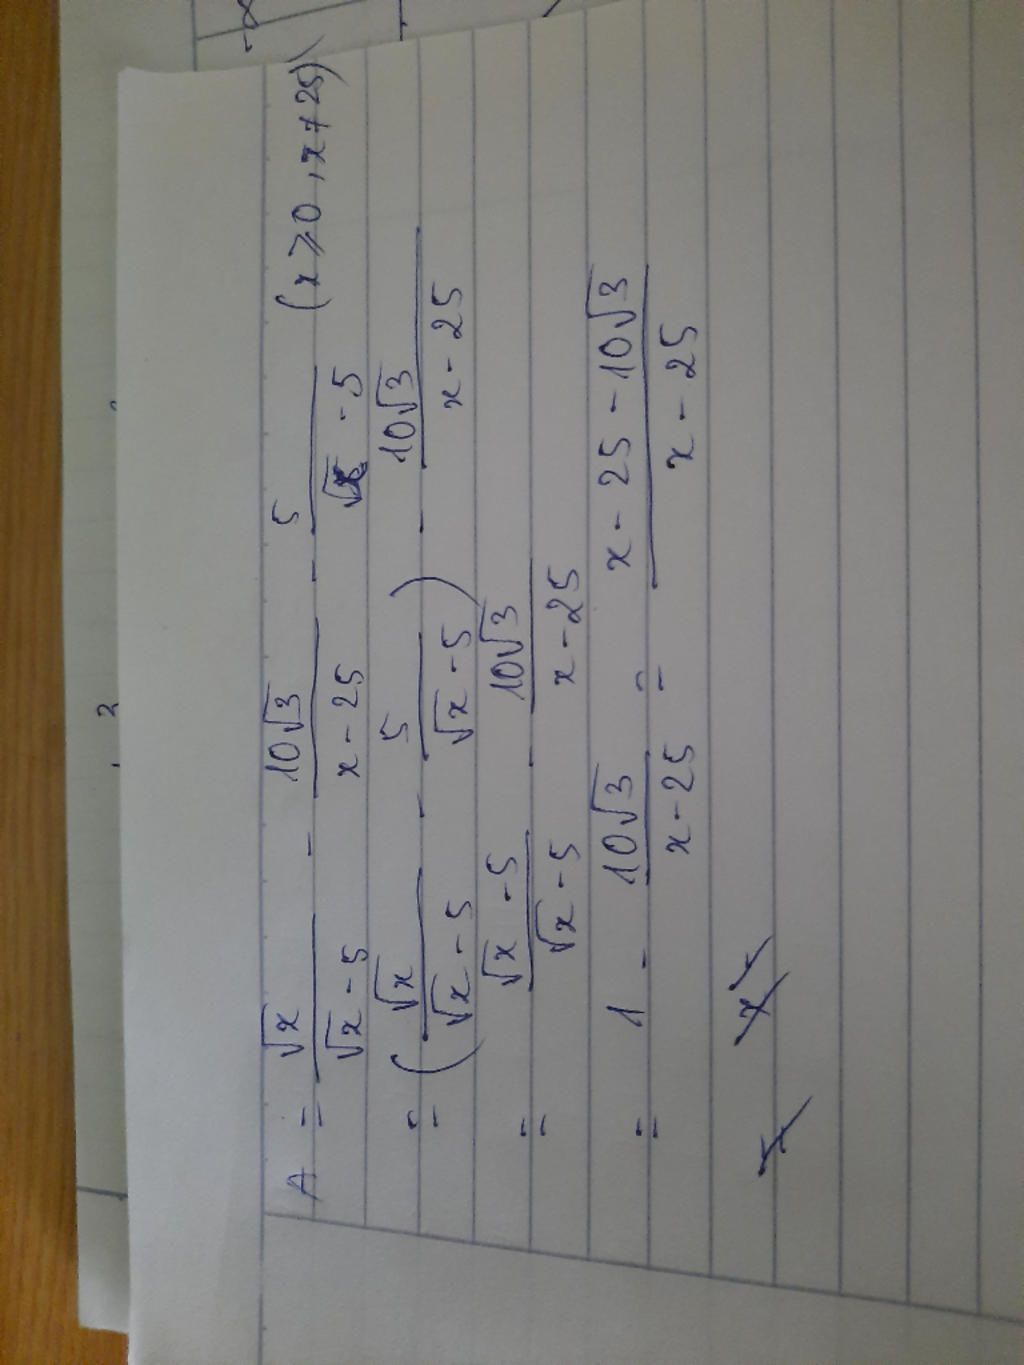 A = \frac{\sqrt{x}}{\sqrt{x} - 5} - \frac{10\sqrt{3}}{x - 25} - \frac{5}{\sqrt{x} - 5} (x ⩾ 0, x ≠ 25)
= \left( \frac{\sqrt{x}}{\sqrt{x} - 5} - \frac{5}{\sqrt{x} - 5} \right) - \frac{10\sqrt{3}}{x - 25}
= \frac{\sqrt{x} - 5}{\sqrt{x} - 5} - \frac{10\sqrt{3}}{x - 25}
= 1 - \frac{10\sqrt{3}}{x - 25} = \frac{x - 25 - 10\sqrt{3}}{x - 25}